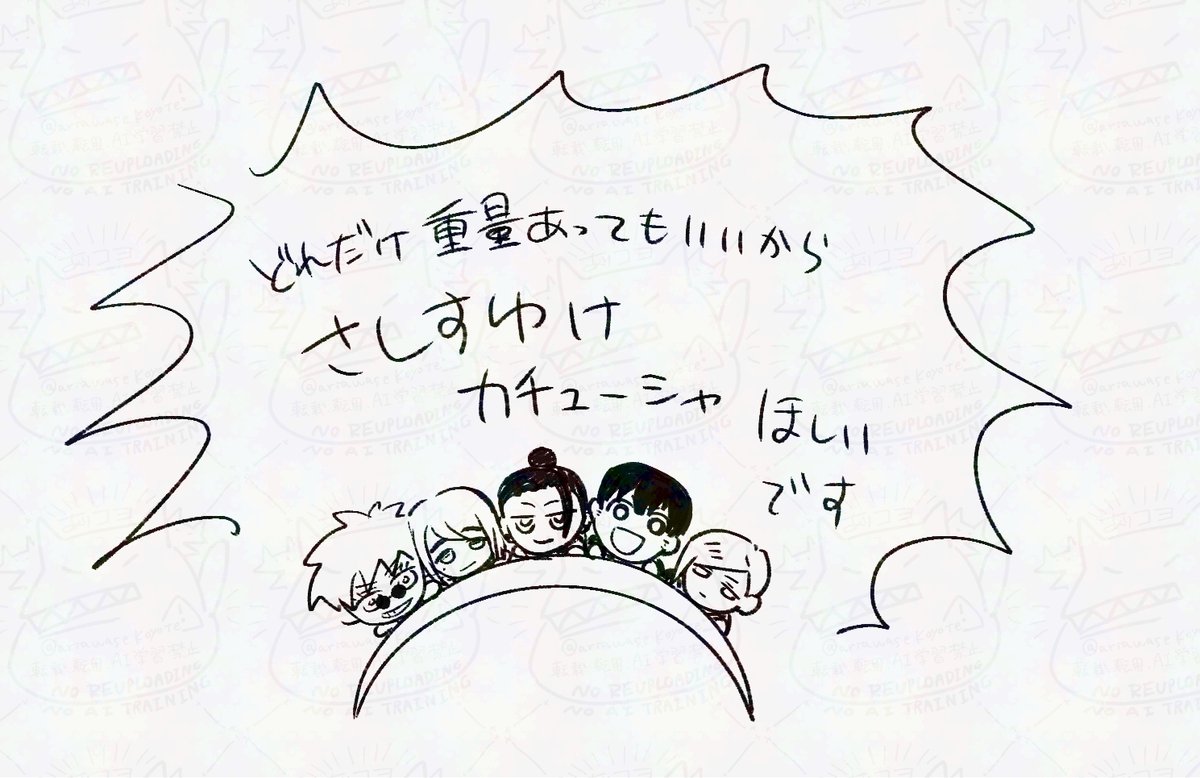 どれだけ重量あってもいいから
さしすゆけ
カチューシャ
ほしい
です
@arrawase Koyote!
転載 転用 AI学習禁止
NO REUPLOADING
NO AI TRAINING